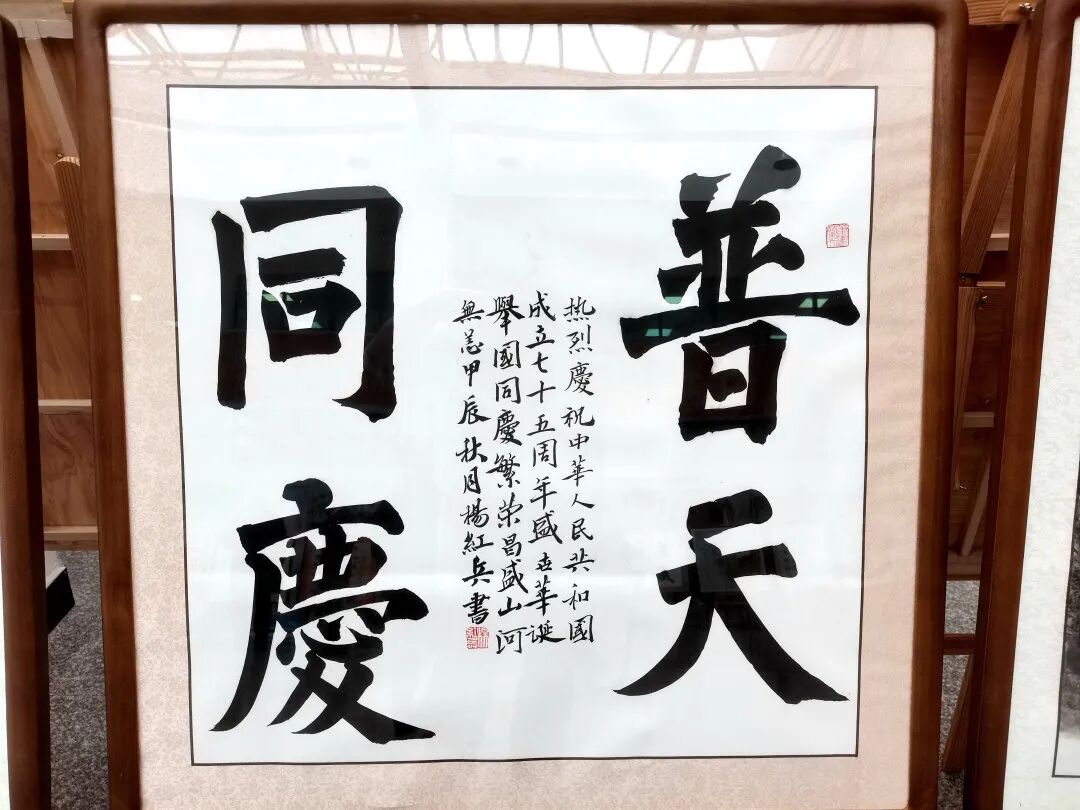 普天
同慶
热烈慶祝中華人民共和國
成立七十五周年盛世華誕
舉國同慶繁荣昌盛山河
無恙甲辰秋月楊紅兵書